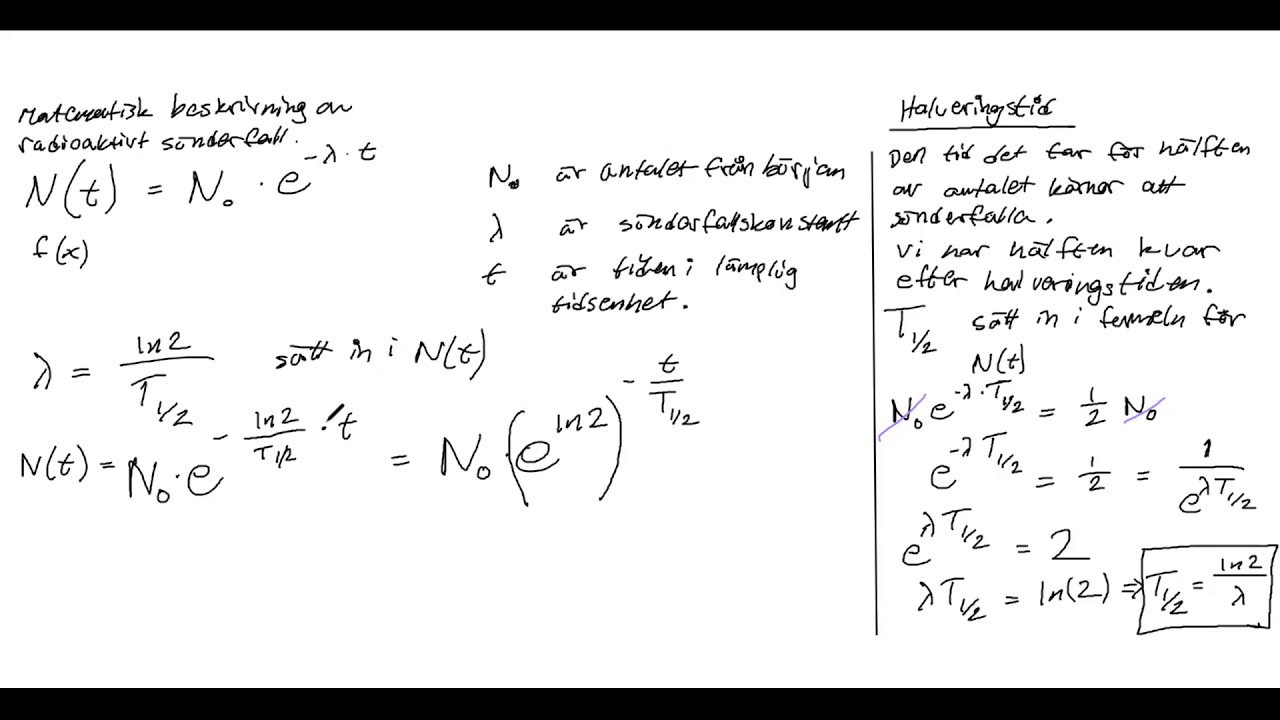 Matematisk beskrivning av
radioaktivt sönderfall.
N(t) = N₀ · e^(-λ · t)
f(x)
N₀ är antalet från början
λ är sönderfallskonstant
t är tiden i lämplig
tidsenhet.
λ = ln2 / T_1/2 sätt in i N(t)
N(t) = N₀ · e^(- ln2/T_1/2 · t) = N₀ (e^(ln2))^(- t/T_1/2)
Halveringstid
Den tid det tar för hälften
av antalet kärnor att
sönderfalla.
Vi har hälften kvar
efter halveringstiden.
T_1/2 sätt in i formeln för
N(t)
N₀ e^(-λ · T_1/2) = 1/2 N₀
e^(-λ T_1/2) = 1/2 = 1 / e^(λ T_1/2)
e^(λ T_1/2) = 2
λ T_1/2 = ln(2) ⇒ T_1/2 = ln2 / λ